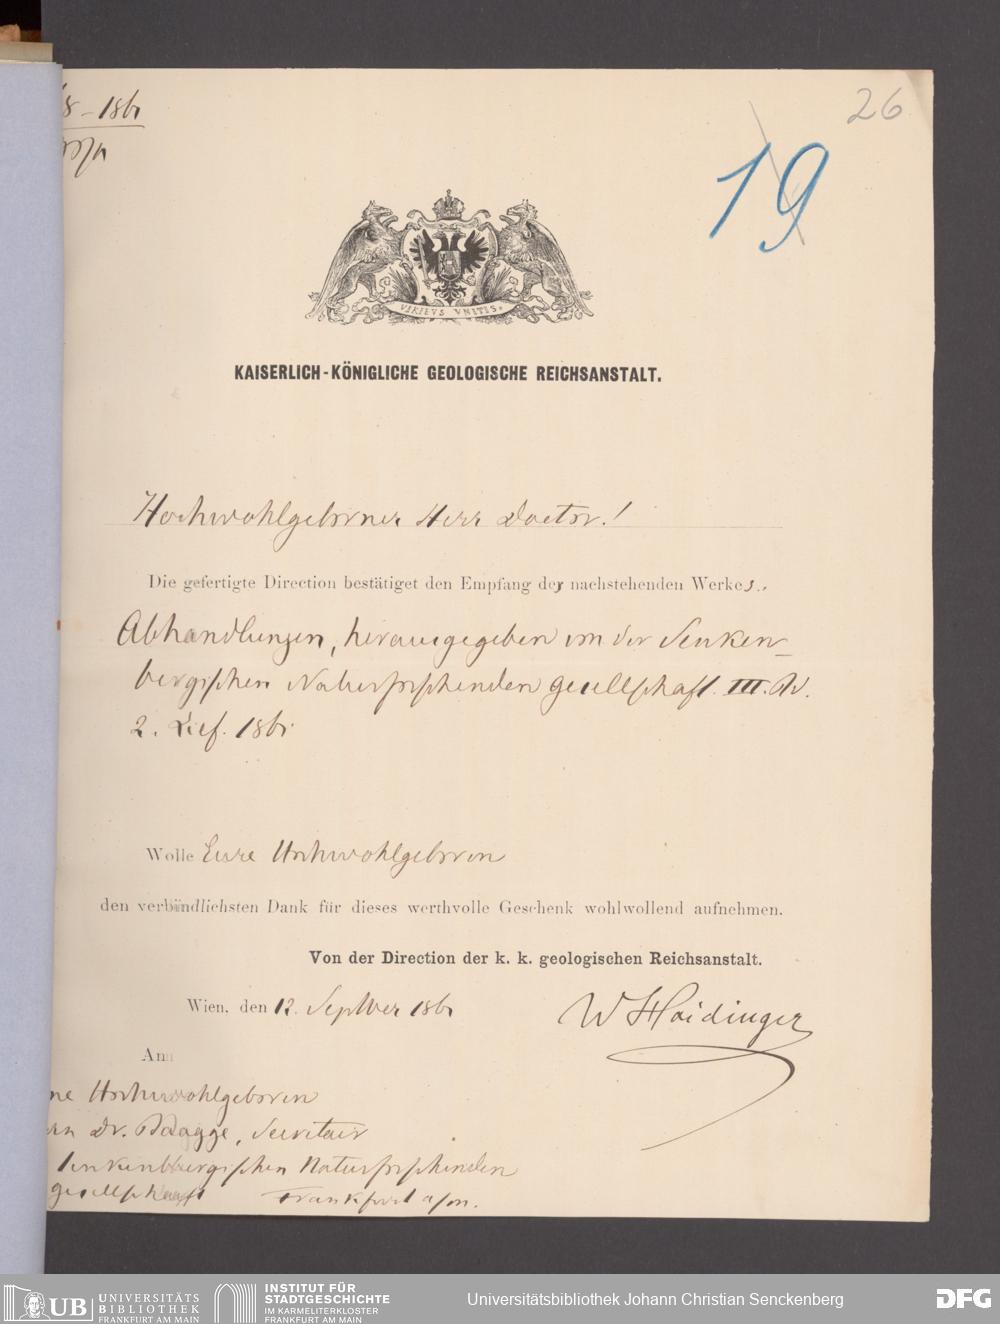 8 - 1861
26
19
VIRIBVS VNITIS.
KAISERLICH-KÖNIGLICHE GEOLOGISCHE REICHSANSTALT.
Hochwohlgeborner Herr Doctor!
Die gefertigte Direction bestätiget den Empfang des nachstehenden Werkes.
Abhandlungen, herausgegeben von der Senken-
bergischen Naturforschenden Gesellschaft. III. Bd.
2. Lief. 1861
Wolle Eure Hochwohlgeboren
den verbindlichsten Dank für dieses werthvolle Geschenk wohlwollend aufnehmen.
Von der Direction der k. k. geologischen Reichsanstalt.
Wien, den 12. September 1861
W Haidinger
An
ne Hochwohlgeboren
rn Dr. Baagge, Secretair
Senkenbergischen Naturforschenden
Gesellschaft Frankfurt a/m.
UB UNIVERSITÄTS
BIBLIOTHEK
FRANKFURT AM MAIN
INSTITUT FÜR
STADTGESCHICHTE
IM KARMELITERKLOSTER
FRANKFURT AM MAIN
Universitätsbibliothek Johann Christian Senckenberg
DFG